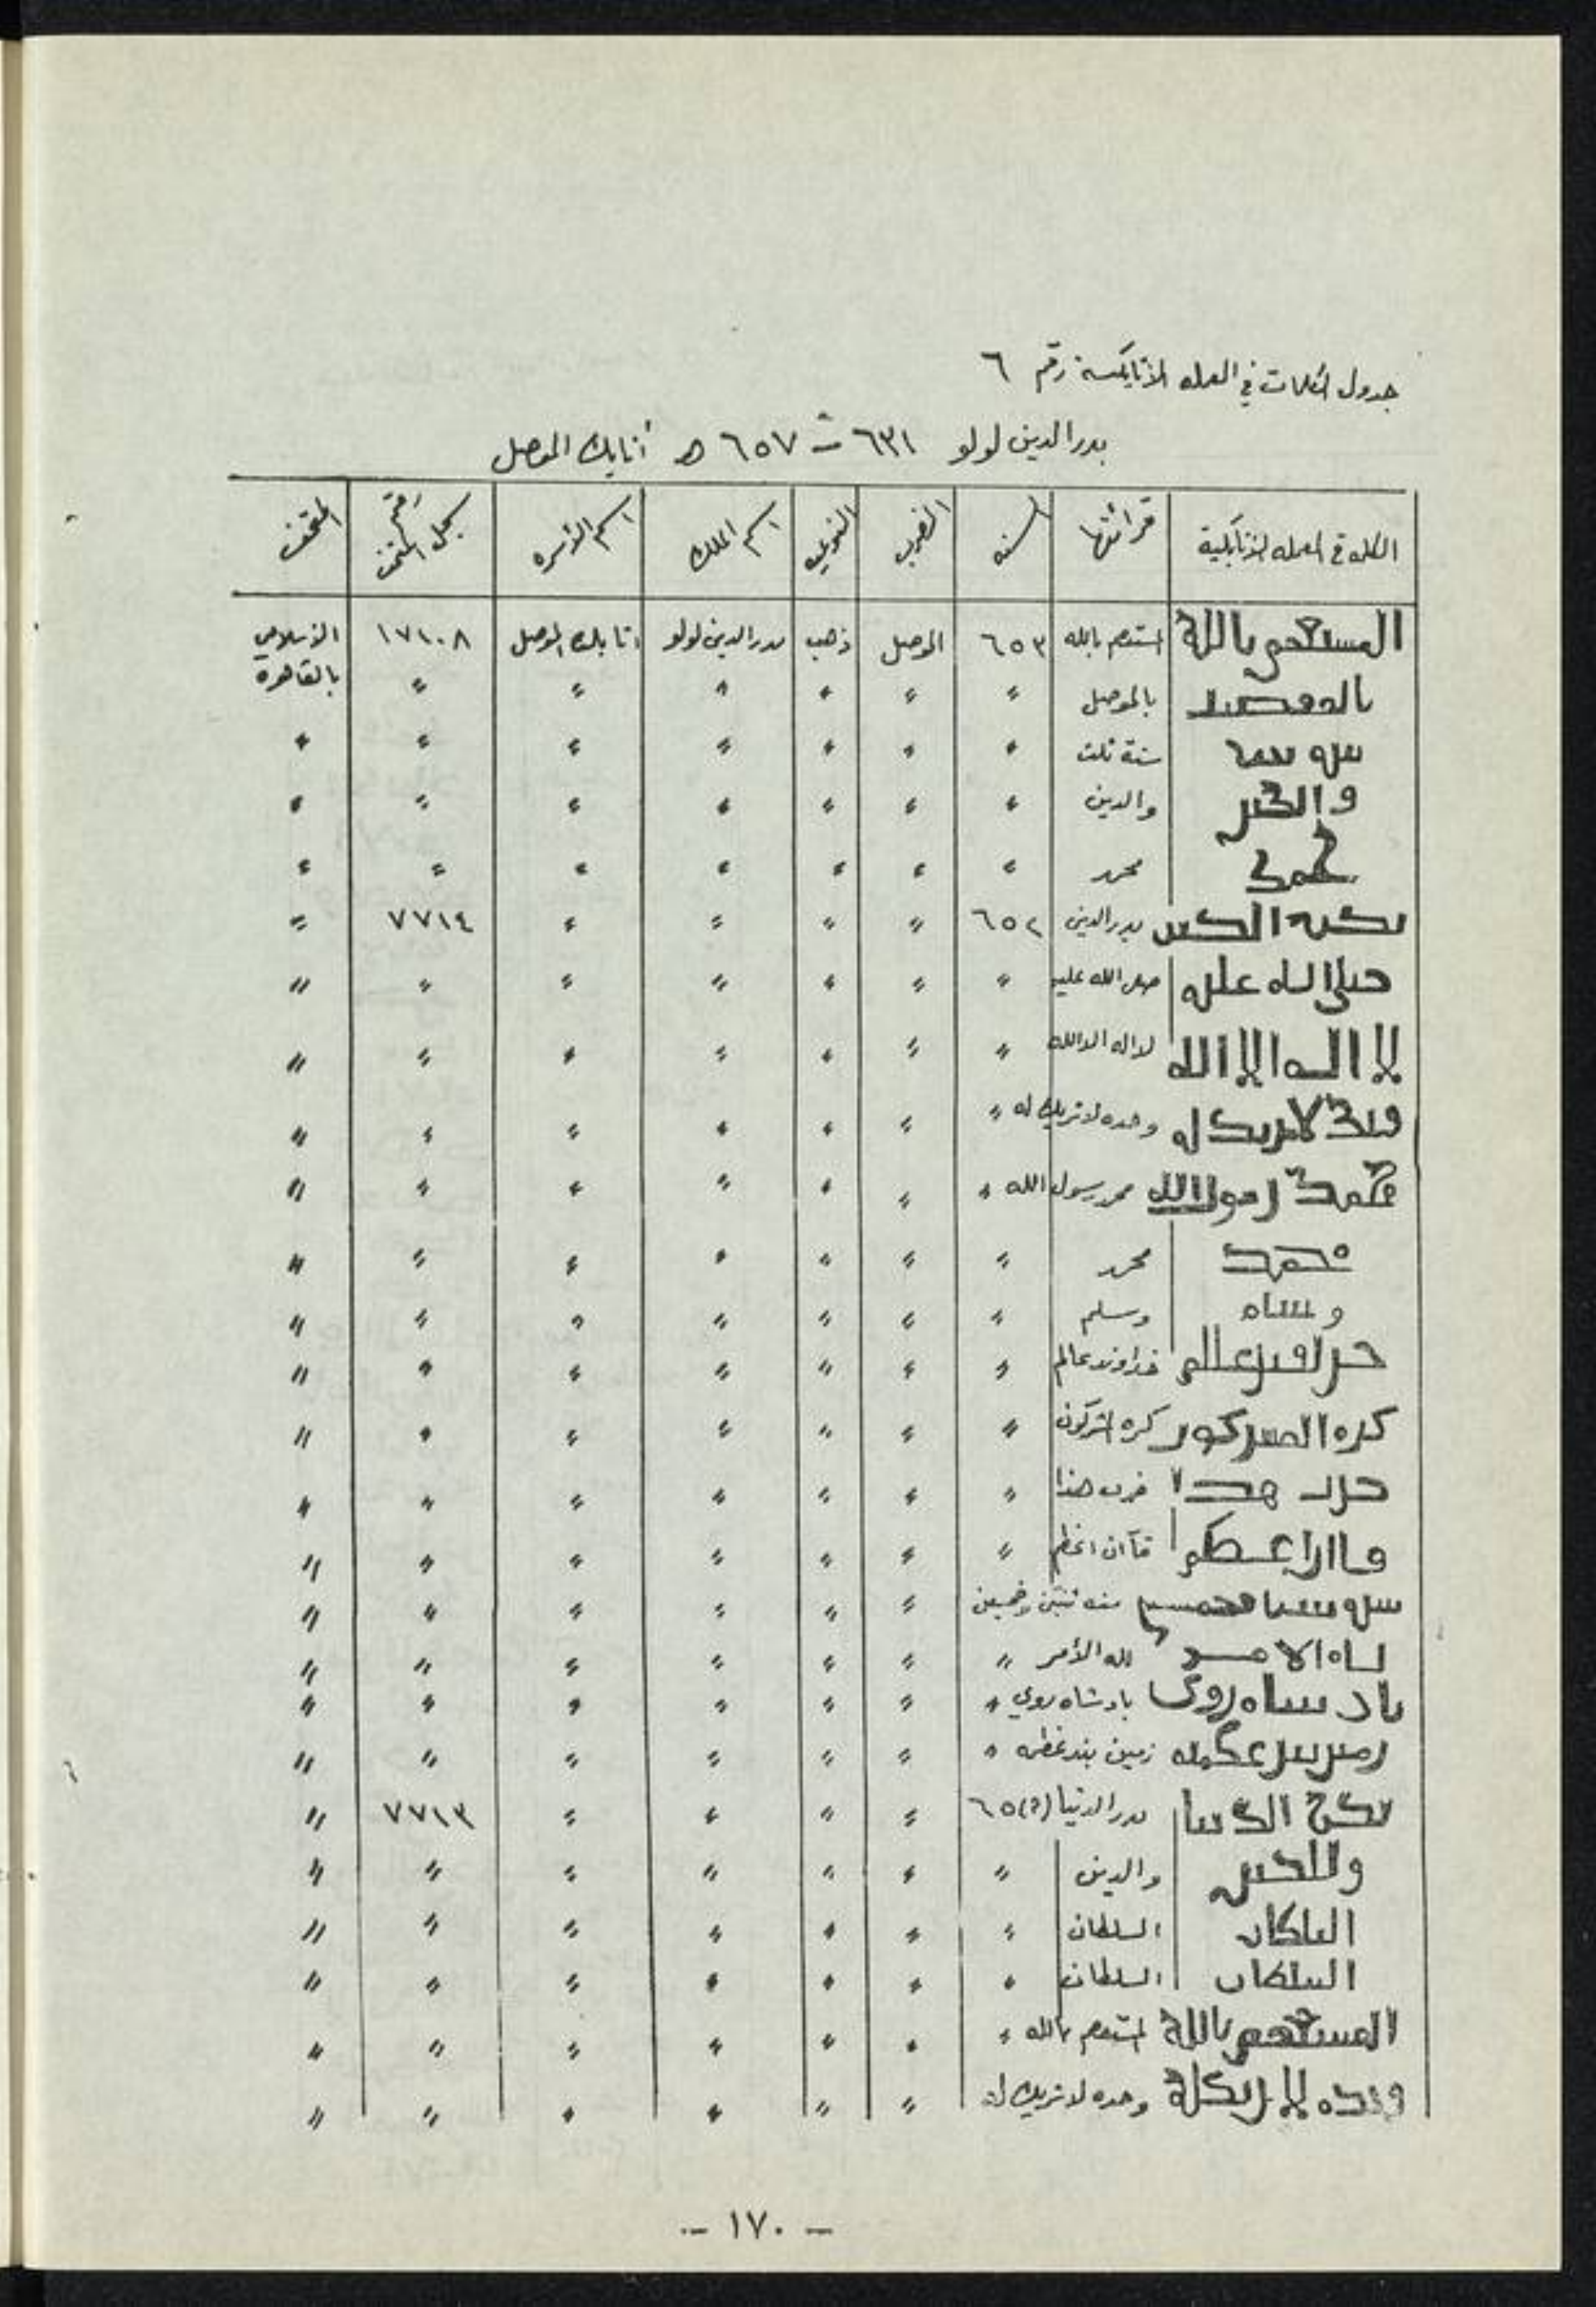 جدول الكلمات في العمله الأتابكية رقم ٦
بدر الدين لولو ٦٣١ – ٦٥٧ هـ أتابك الموصل
الكلمه في العمله الأتابكية قرائتها السنه الضرب النوعيه اسم الملك اسم الأسره رقم سجل المتحف المتحف
المستعصم بالله المستعصم بالله ٦٥٣ الموصل ذهب بدر الدين لولو اتابك الموصل ١٧١٠٨ الإسلامي بالقاهرة
بالموصل بالموصل " " " " " "
سنه ثلث سنة ثلث " " " " " " "
والدين والدين " " " " " " "
محمد محمد " " " " " " "
بدر الدين بدر الدين ٦٥٢ " " " " ٧٧١٤ "
صلى الله عليه صلى الله عليه " " " " " " "
لا اله الا الله لا اله الا الله " " " " " " "
وحده لا شريك له وحده لا شريك له " " " " " " "
محمد رسول الله محمد رسول الله " " " " " " "
محمد محمد " " " " " " "
وسلم وسلم " " " " " " "
خداوند عالم خداوند عالم " " " " " " "
كره المشركون كره المشركون " " " " " " "
ضرب هذا ضرب هذا " " " " " " "
قاان اعظم قآان اعظم " " " " " " "
سنه ثنتين وخمسين " " " " " "
لله الامر لله الأمر " " " " " " "
بادشاه روى بادشاه روي " " " " " " "
زمين بند عظمه " " " " " " "
بدر الدنيا بدر الدنيا ٦٥(؟) " " " " ٧٧١٣ "
والدين والدين " " " " " " "
السلطان السلطان " " " " " " "
السلطان السلطان " " " " " " "
المستعصم بالله المستعصم بالله " " " " " " "
وحده لا شريك له وحده لا شريك له " " " " " "
– ١٧٠ –